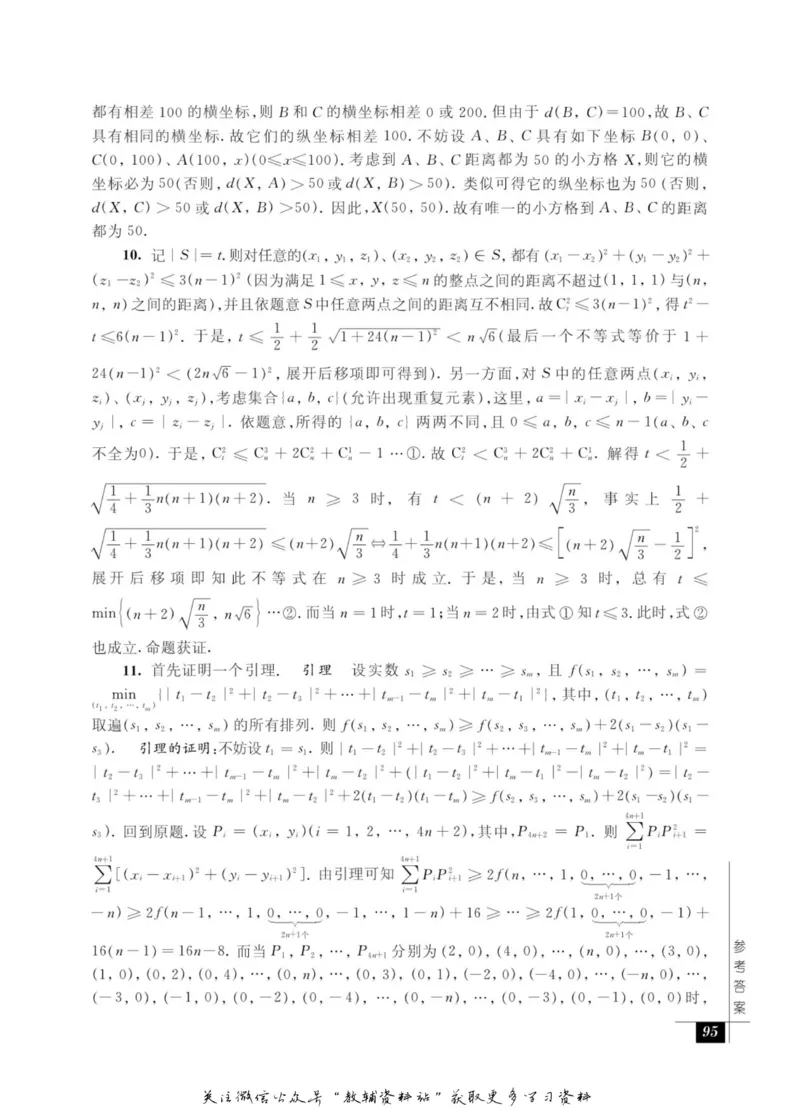 都有相差 100 的横坐标,则 B 和 C 的横坐标相差 0 或 200. 但由于 d(B, C)=100,故 B、C
具有相同的横坐标. 故它们的纵坐标相差 100. 不妨设 A、B、C 具有如下坐标 B(0, 0)、
C(0, 100)、A(100, x)(0≤x≤100). 考虑到 A、B、C 距离都为 50 的小方格 X,则它的横
坐标必为 50(否则, d(X, A)>50 或 d(X, B)>50). 类似可得它的纵坐标也为 50 (否则,
d(X, C) > 50 或 d(X, B) >50). 因此,X(50, 50). 故有唯一的小方格到 A、B、C 的距离
都为 50.
10. 记 | S |= t. 则对任意的(x₁, y₁, z₁)、(x₂, y₂, z₂) ∈ S, 都有 (x₁ - x₂)² + (y₁ - y₂)² +
(z₁ - z₂)² ≤ 3(n-1)² (因为满足 1≤ x, y, z≤ n 的整点之间的距离不超过(1, 1, 1) 与(n,
n, n) 之间的距离),并且依题意 S 中任意两点之间的距离互不相同. 故 C_t^2 ≤ 3(n-1)², 得 t² -
t≤6(n-1)². 于是, t ≤ 1/2 + 1/2 √(1+24(n-1)²) < n√6 (最后一个不等式等价于 1 +
24(n-1)² < (2n√6 - 1)², 展开后移项即可得到). 另一方面,对 S 中的任意两点(x_i, y_i,
z_i)、(x_j, y_j, z_j),考虑集合{a, b, c}(允许出现重复元素),这里, a=| x_i - x_j |, b=| y_i -
y_j |, c = | z_i - z_j |. 依题意,所得的 {a, b, c} 两两不同,且 0 ≤ a, b, c ≤ n-1(a、b、c
不全为0). 于是, C_t^2 ≤ C_n^3 + 2C_n^2 + C_n^1 - 1 …①. 故 C_t^2 < C_n^3 + 2C_n^2 + C_n^1. 解得 t < 1/2 +
√(1/4 + 1/3 n(n+1)(n+2)). 当 n ≥ 3 时, 有 t < (n + 2) √(n/3), 事实上 1/2 +
√(1/4 + 1/3 n(n+1)(n+2)) ≤(n+2)√(n/3) ⇔ 1/4 + 1/3 n(n+1)(n+2)≤[(n+2)√(n/3) - 1/2]²,
展开后移项即知此不等式在 n ≥ 3 时成立. 于是, 当 n ≥ 3 时, 总有 t ≤
min{(n+2)√(n/3), n√6} …②. 而当 n = 1时,t = 1;当 n = 2时,由式 ① 知 t≤3. 此时,式 ②
也成立. 命题获证.
11. 首先证明一个引理. 引理 设实数 s₁ ≥ s₂ ≥ … ≥ s_m, 且 f(s₁, s₂, …, s_m) =
min_{(t₁, t₂, …, t_m)} {| t₁ - t₂ |² +| t₂ - t₃ |² + … +| t_{m-1} - t_m |² +| t_m - t₁ |²}, 其中, (t₁, t₂, …, t_m)
取遍(s₁, s₂, …, s_m) 的所有排列. 则 f(s₁, s₂, …, s_m) ≥ f(s₂, s₃, …, s_m) + 2(s₁ - s₂)(s₁ -
s₃). 引理的证明:不妨设 t₁ = s₁. 则 | t₁ - t₂ |² +| t₂ - t₃ |² + … +| t_{m-1} - t_m |² +| t_m - t₁ |² =
| t₂ - t₃ |² + … +| t_{m-1} - t_m |² +| t_m - t₂ |² + (| t₁ - t₂ |² +| t_m - t₁ |² -| t_m - t₂ |²) =| t₂ -
t₃ |² + … +| t_{m-1} - t_m |² +| t_m - t₂ |² + 2(t₁ - t₂)(t₁ - t_m) ≥ f(s₂, s₃, …, s_m) + 2(s₁ - s₂)(s₁ -
s₃). 回到原题. 设 P_i = (x_i, y_i)(i = 1, 2, …, 4n + 2),其中,P_{4n+2} = P₁. 则 ∑_{i=1}^{4n+1} P_iP_{i+1}^2 =
∑_{i=1}^{4n+1} [(x_i - x_{i+1})² + (y_i - y_{i+1})²]. 由引理可知 ∑_{i=1}^{4n+1} P_iP_{i+1}^2 ≥ 2f(n, …, 1, 0, …, 0 (2n+1个), -1, …,
-n) ≥ 2f(n-1, …, 1, 0, …, 0 (2n+1个), -1, …, 1-n) + 16 ≥ … ≥ 2f(1, 0, …, 0 (2n+1个), -1) +
16(n-1) = 16n-8. 而当 P₁, P₂, …, P_{4n+1} 分别为 (2, 0), (4, 0), …, (n, 0), …, (3, 0),
(1, 0), (0, 2), (0, 4), …, (0, n), …, (0, 3), (0, 1), (-2, 0), (-4, 0), …, (-n, 0), …,
(-3, 0), (-1, 0), (0, -2), (0, -4), …, (0, -n), …, (0, -3), (0, -1), (0, 0) 时,
参考答案
95
关注微信公众号“教辅资料站”获取更多学习资料